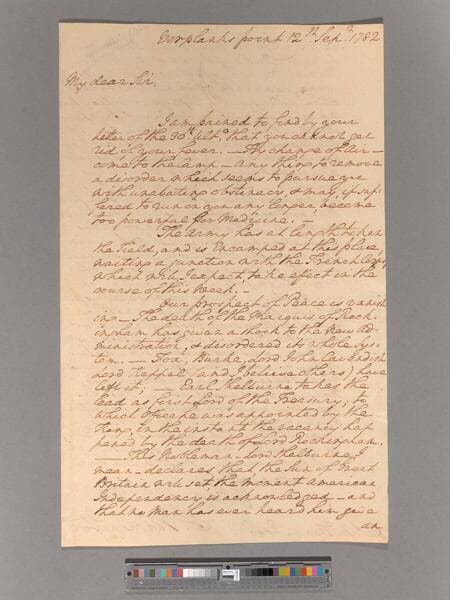 Verplanks point 12th Sepr. 1782
My dear Sir,
I am pained to find by your
letter of the 30th ulto. that you are not get
rid of your fever. — Try change of air —
come to the Camp — any thing to remove
a disorder which seems to pursue you
with unabating obstinacy, & may, if suf-
fered to run on you any longer, become
too powerful for Medicine. —
The Army has at length taken
the Field, and is Encamped at this place,
waiting a junction with the French Corps,
which will, I expect, take effect in the
course of this Week. —
Our prospect of Peace is vanish
ing — The death of the Marquis of Rock-
ingham has given a shock to the New Ad-
ministration, & disordered its whole Sys-
tem. — Fox, Burke, Lord John Cavendish
Lord Keppel (and I believe others) have
left it; — Earl Shelburne takes the
lead as first Lord of the Treasury, to
which Office he was appointed by the
King, in the instant the vacancy hap
pened by the death of Lord Rockingham.
— This Nobleman — Lord Shelburne I
mean — declares that, the Sun of Great
Britain will set the moment American
Independency is acknowledged — and
that no Man has ever heard him give
an